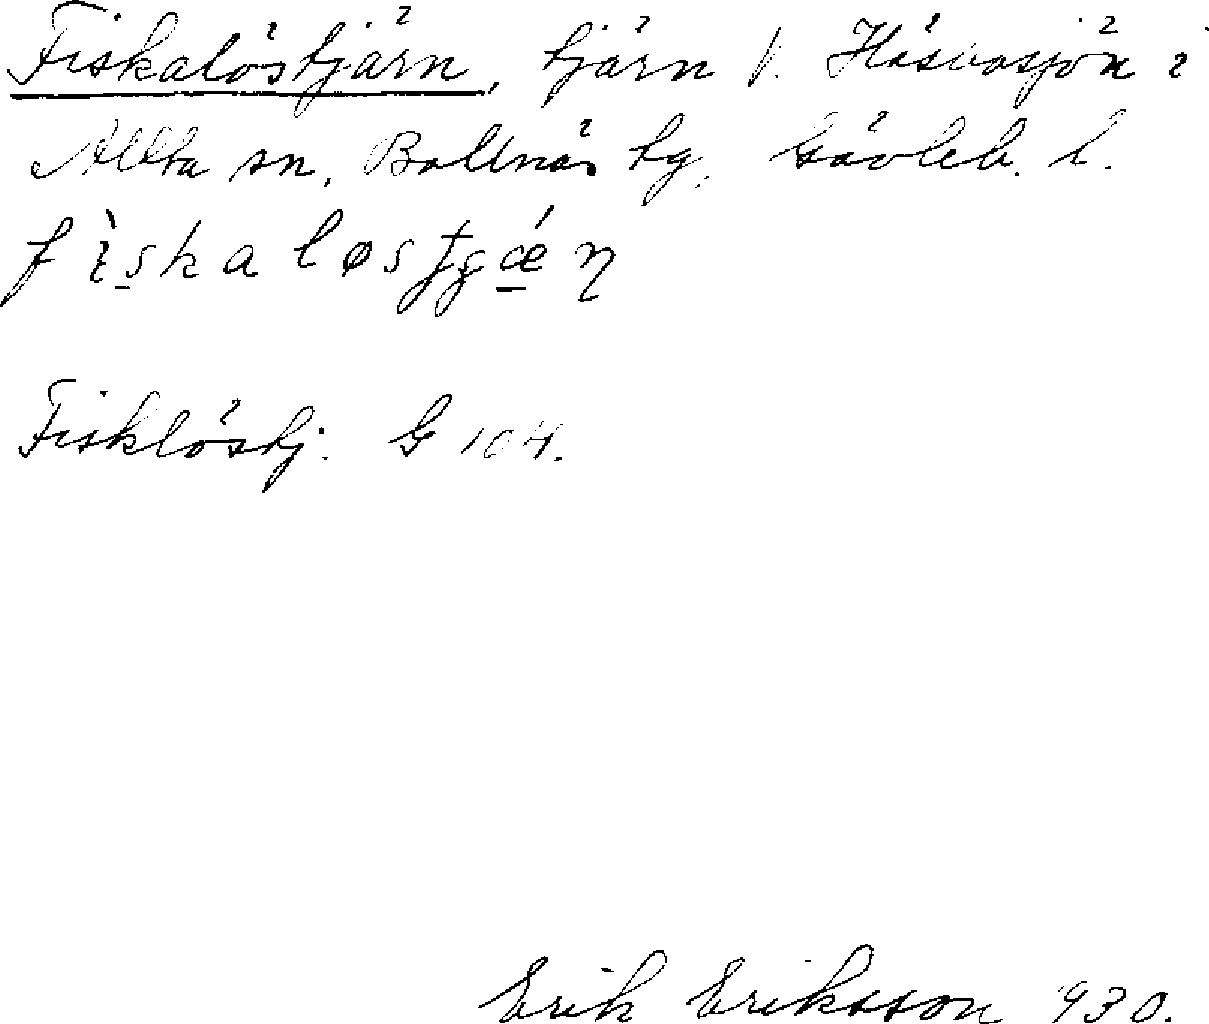 Fiskalöstjärn, tjärn v. Häsbosjön i
Alfta sn, Bollnäs tg, Gävleb. l.
Fisklöstj. G 104.
Erik Eriksson 1930.